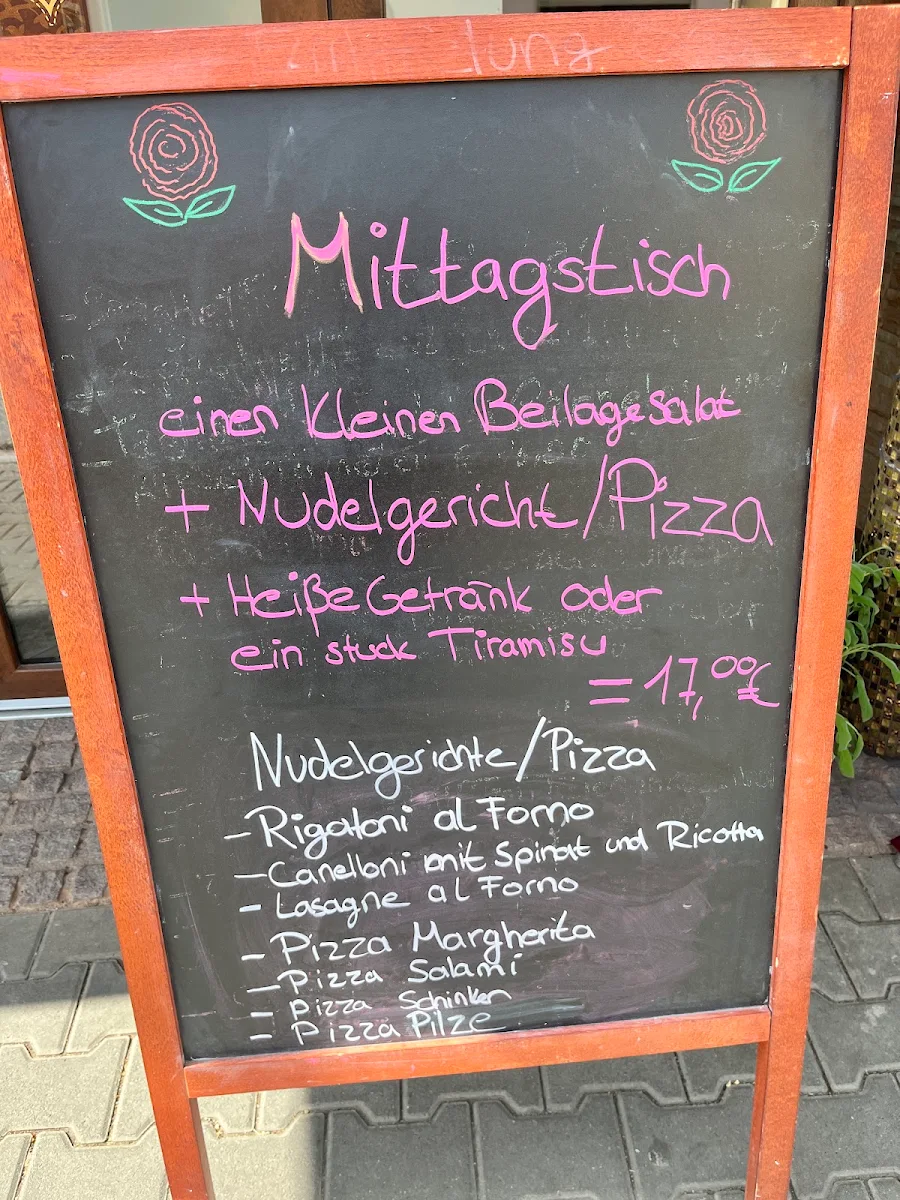 Mittagstisch
einen kleinen Beilagesalat
+ Nudelgericht/Pizza
+ Heiße Getränk oder
ein stuck Tiramisu
= 17,00€
Nudelgerichte/Pizza
- Rigatoni al Forno
- Canelloni mit Spinat und Ricotta
- Lasagne al Forno
- Pizza Margherita
- Pizza Salami
- Pizza Schinken
- Pizza Pilze